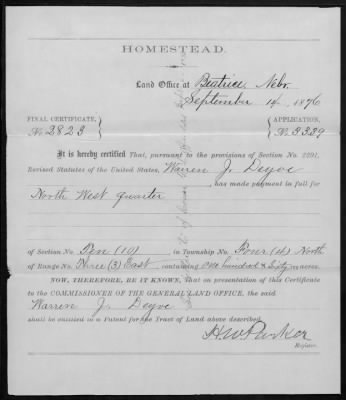 HOMESTEAD.
Land Office at Beatrice, Nebr.
September 14, 1876
FINAL CERTIFICATE,
No. 2823
APPLICATION,
No. 3339
It is hereby certified That, pursuant to the provisions of Section No. 2291,
Revised Statutes of the United States, Warren J.
has made payment in full for
North West quarter
of Section No. Ten (10) in Township No. Four (4) North
of Range No. Three (3) East containing one hundred & Sixty acres.
NOW, THEREFORE, BE IT KNOWN, That on presentation of this Certificate
to the COMMISSIONER OF THE GENERAL LAND OFFICE, the said
Warren J.
shall be entitled to a Patent for the Tract of Land above described.
H. W. Parker
Register.